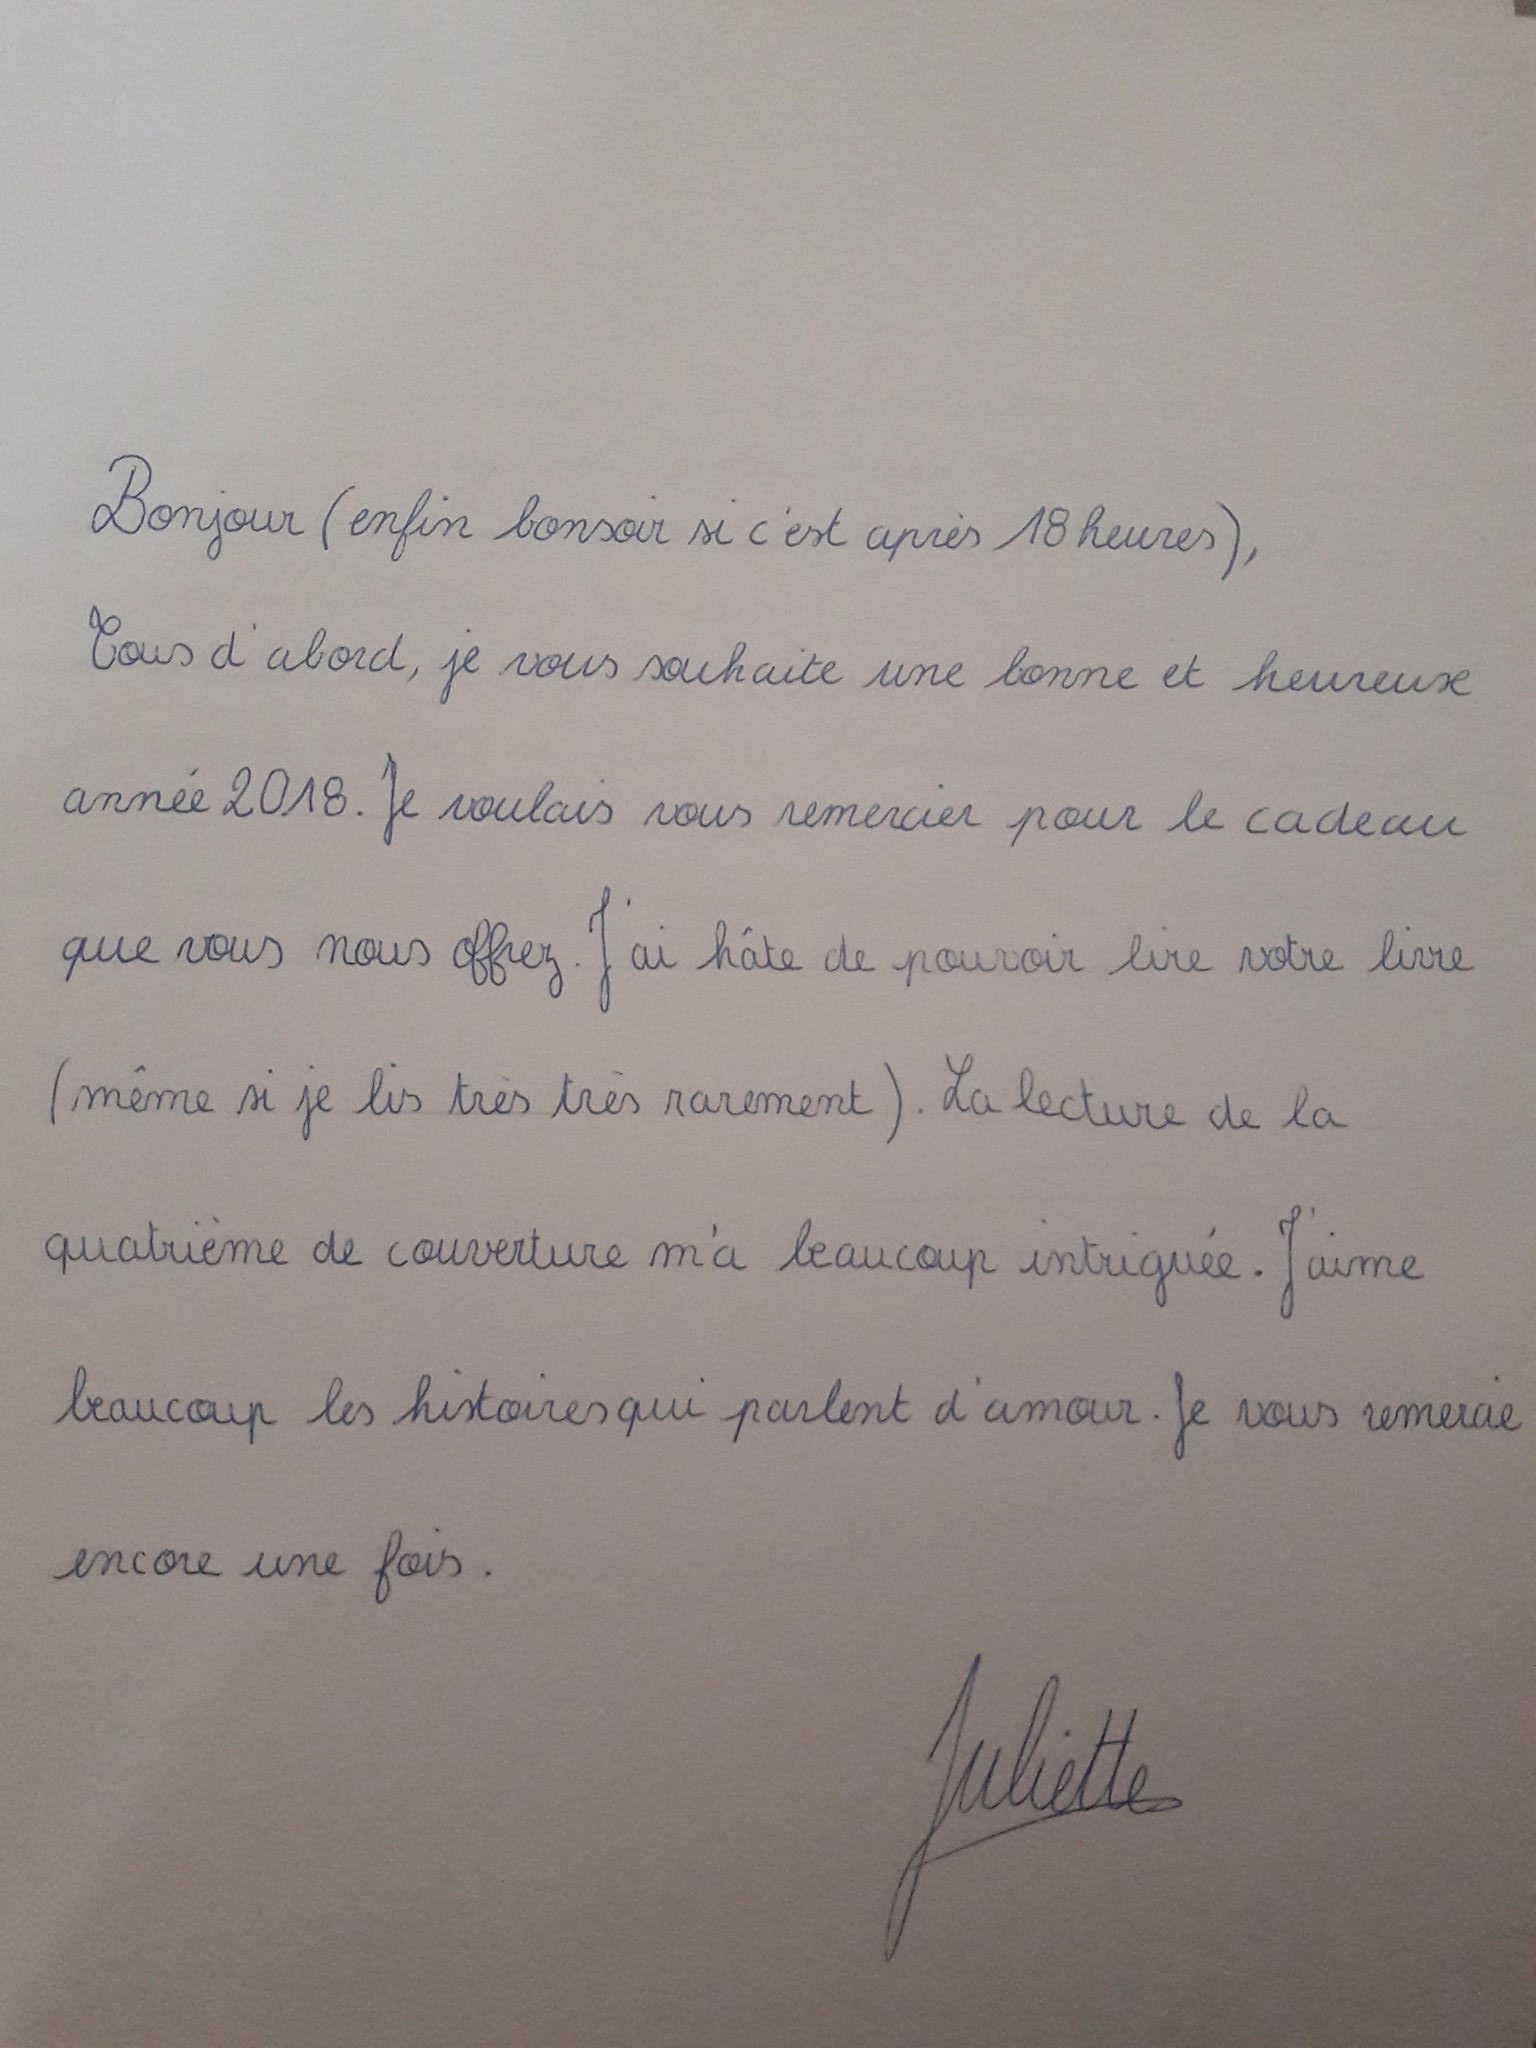 Bonjour (enfin bonsoir si c'est après 18 heures),
Tous d'abord, je vous souhaite une bonne et heureux
année 2018. Je voulais vous remercier pour le cadeau
que vous nous offrez. J'ai hâte de pouvoir lire votre livre
(même si je lis très très rarement). La lecture de la
quatrième de couverture m'a beaucoup intriguée. J'aime
beaucoup les histoires qui parlent d'amour. Je vous remercie
encore une fois.
Juliette